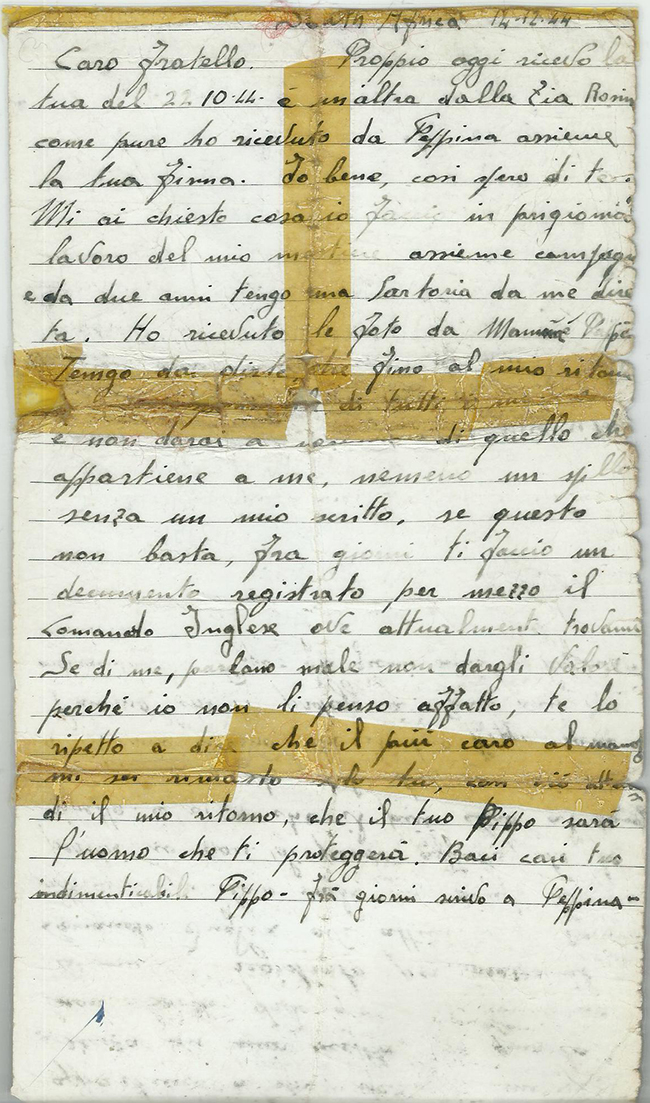 South Africa 14-12-44
Caro Fratello. Proppio oggi ricevo la
tua del 22 10-44- è un'altra dalla Zia Rosin
come pure ho ricevuto da Peppina assieme
la tua firma. Io bene, cosi spero di te.
Mi ai chiesto cosa io faccio in prigionia
lavoro del mio mestiere assieme
e da due anni tengo una Sartoria da me dire
ta. Ho ricevuto le foto da
Tengo da dirte che fino al mio ritorn
di tutti
e non darai a di quello che
appartiene a me, nemeno un spillo
senza un mio scritto, se questo
non basta, fra giorni ti faccio un
documento registrato per mezzo il
Comando Inglese ove attualmente trovami
Se di me, parlano male non dargli valore
perché io non li penso affatto, te lo
ripetto a dire che il più caro al mondo
mi sei rimasto solo tu, con ciò atten
di il mio ritorno, che il tuo Pippo sarà
l'uomo che ti proteggerà. Baci cari tuo
indimenticabile Pippo - Frà giorni scrivo a Peppina -